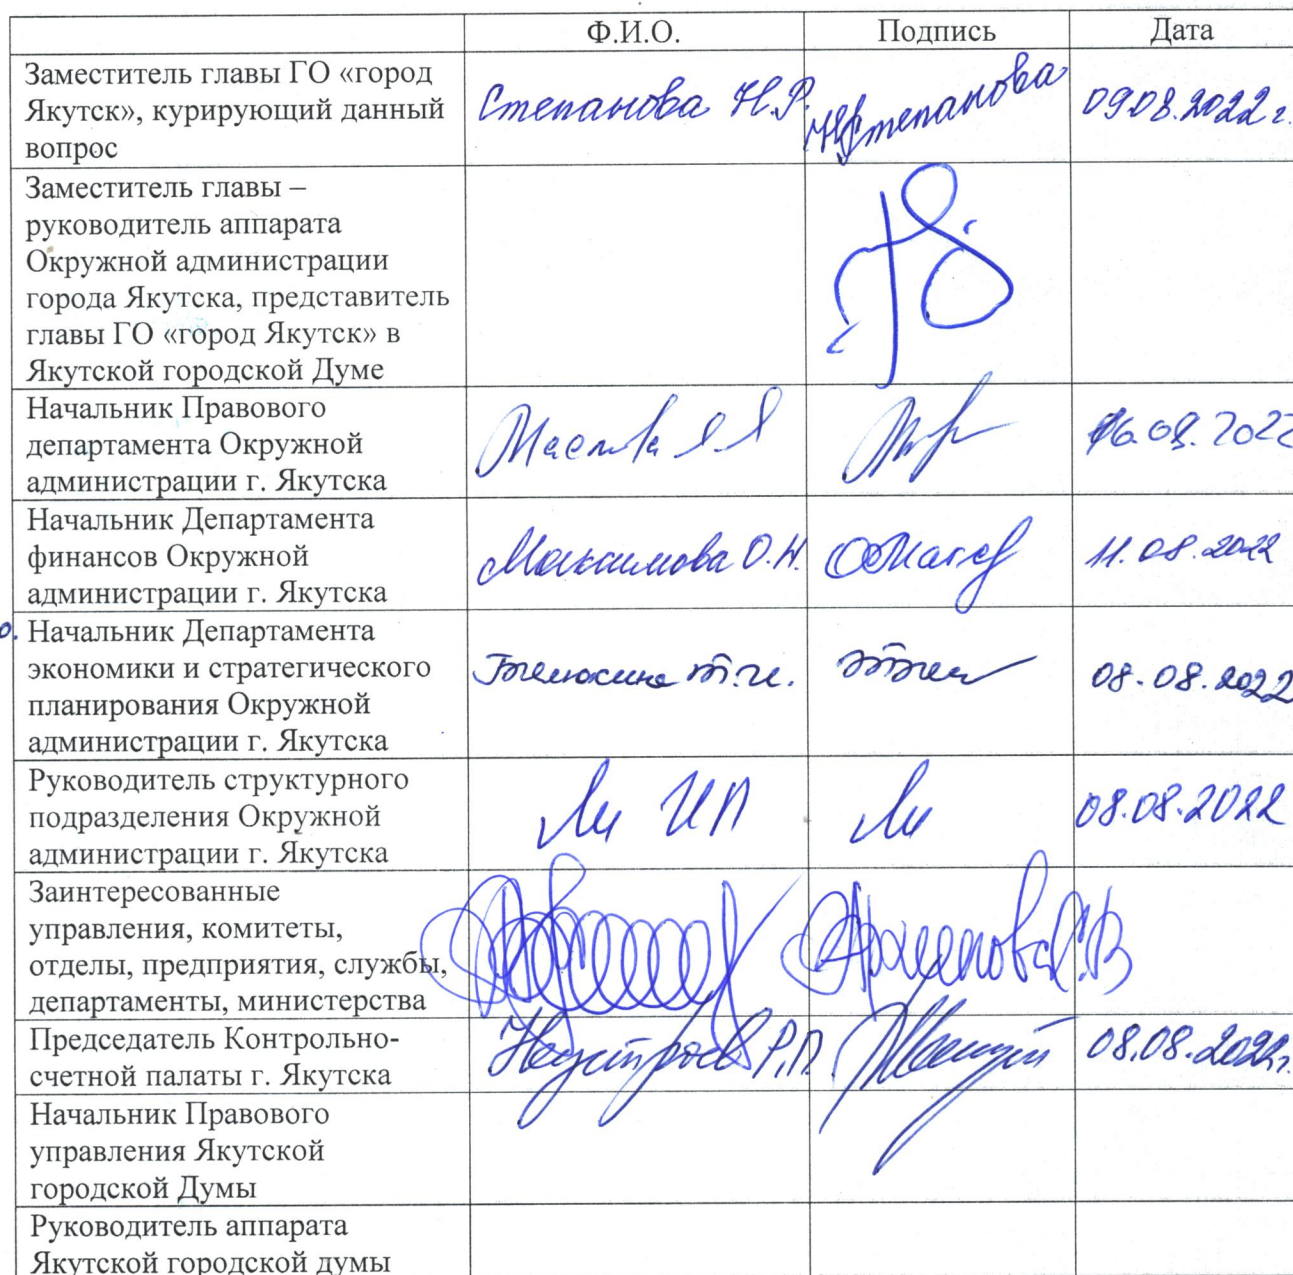 Ф.И.О. Подпись Дата
Заместитель главы ГО «город
Якутск», курирующий данный
вопрос
Степанова Н.Р. НСтепанова 09.08.2022 г.
Заместитель главы –
руководитель аппарата
Окружной администрации
города Якутска, представитель
главы ГО «город Якутск» в
Якутской городской Думе
Начальник Правового
департамента Окружной
администрации г. Якутска
Маслова
Начальник Департамента
финансов Окружной
администрации г. Якутска
Максимова О.Н. 11.08.2022
о. Начальник Департамента
экономики и стратегического
планирования Окружной
администрации г. Якутска
Т.И. 08.08.2022
Руководитель структурного
подразделения Окружной
администрации г. Якутска
Ли ИП Ли 08.08.2022
Заинтересованные
управления, комитеты,
отделы, предприятия, службы,
департаменты, министерства
Председатель Контрольно-
счетной палаты г. Якутска
Неустроев Р.П. 08.08.2022г.
Начальник Правового
управления Якутской
городской Думы
Руководитель аппарата
Якутской городской думы